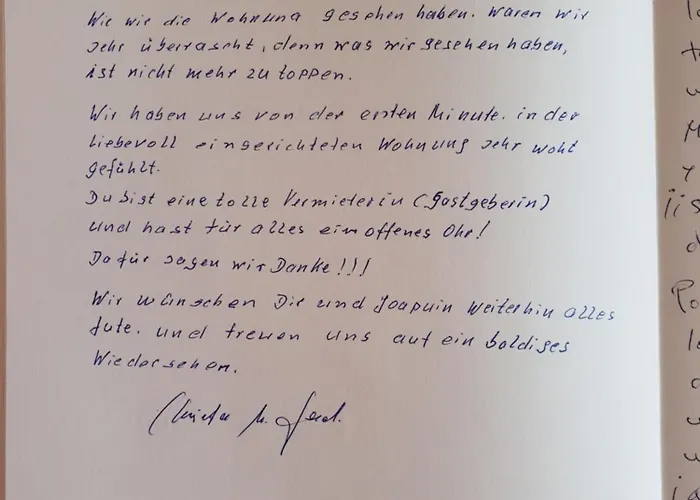 Wie wir die Wohnung gesehen haben. waren wir
sehr überrascht, denn was wir gesehen haben,
ist nicht mehr zu toppen.
Wir haben uns von der ersten Minute. in der
liebevoll eingerichteten Wohnung sehr wohl
gefühlt.
Du bist eine tolle Vermieterin (Gastgeberin)
und hast für alles ein offenes Ohr!
Dafür sagen wir Danke!!!
Wir wünschen Dir und Joaquin weiterhin alles
Gute. und freuen uns auf ein baldiges
Wiedersehen.